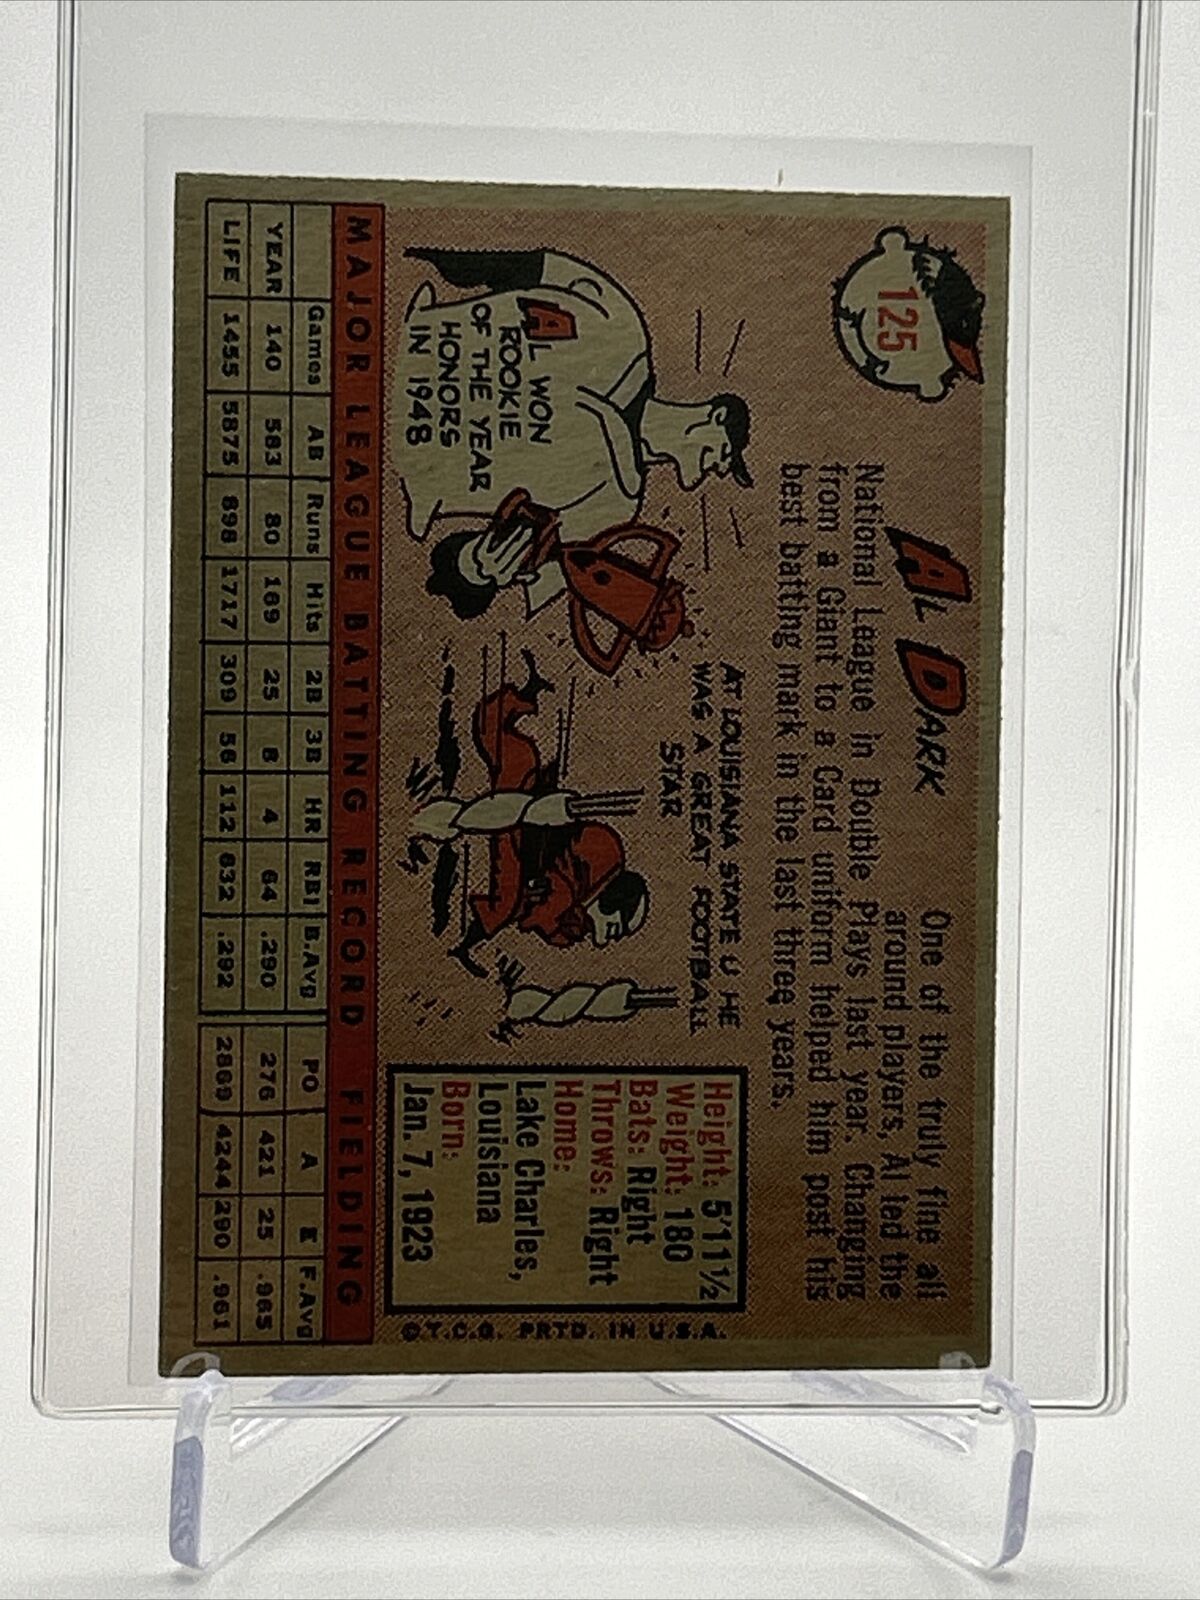 125
AL DARK
One of the truly fine all
around players, Al led the
National League in Double Plays last year. Changing
from a Giant to a Card uniform helped him post his
best batting mark in the last three years.
AL WON
ROOKIE
OF THE YEAR
HONORS
IN 1948
AT LOUISIANA STATE U HE
WAS A GREAT FOOTBALL
STAR
Height: 5'11½
Weight: 180
Bats: Right
Throws: Right
Home:
Lake Charles,
Louisiana
Born:
Jan. 7, 1923
©T.C.G. PRTD. IN U.S.A.
MAJOR LEAGUE BATTING RECORD FIELDING
Games AB Runs Hits 2B 3B HR RBI B.Avg PO A E F.Avg
YEAR 140 583 80 169 25 8 4 64 .290 276 421 25 .965
LIFE 1455 5875 898 1717 309 56 112 632 .292 2868 4244 290 .961